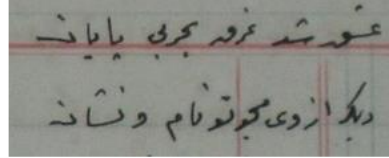 غسق شد غرق بحر بی پایان
دیگر از وی مجو تو نام و نشان